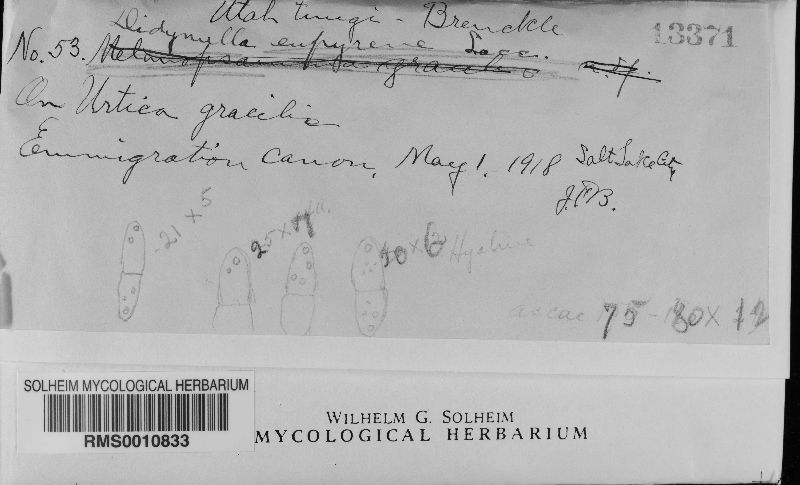 Utah fungi - Brenckle
13371
Didymella eupyrena Sacc.
No. 53. n.sp.
On Urtica gracilis
Emmigration Canon, May 1, 1918 Salt Lake City
J.F.B.
21 x 5
25 x 7
20 x 6 Hyaline
ascae 75-80 x 12
SOLHEIM MYCOLOGICAL HERBARIUM
RMS0010833
WILHELM G. SOLHEIM
MYCOLOGICAL HERBARIUM